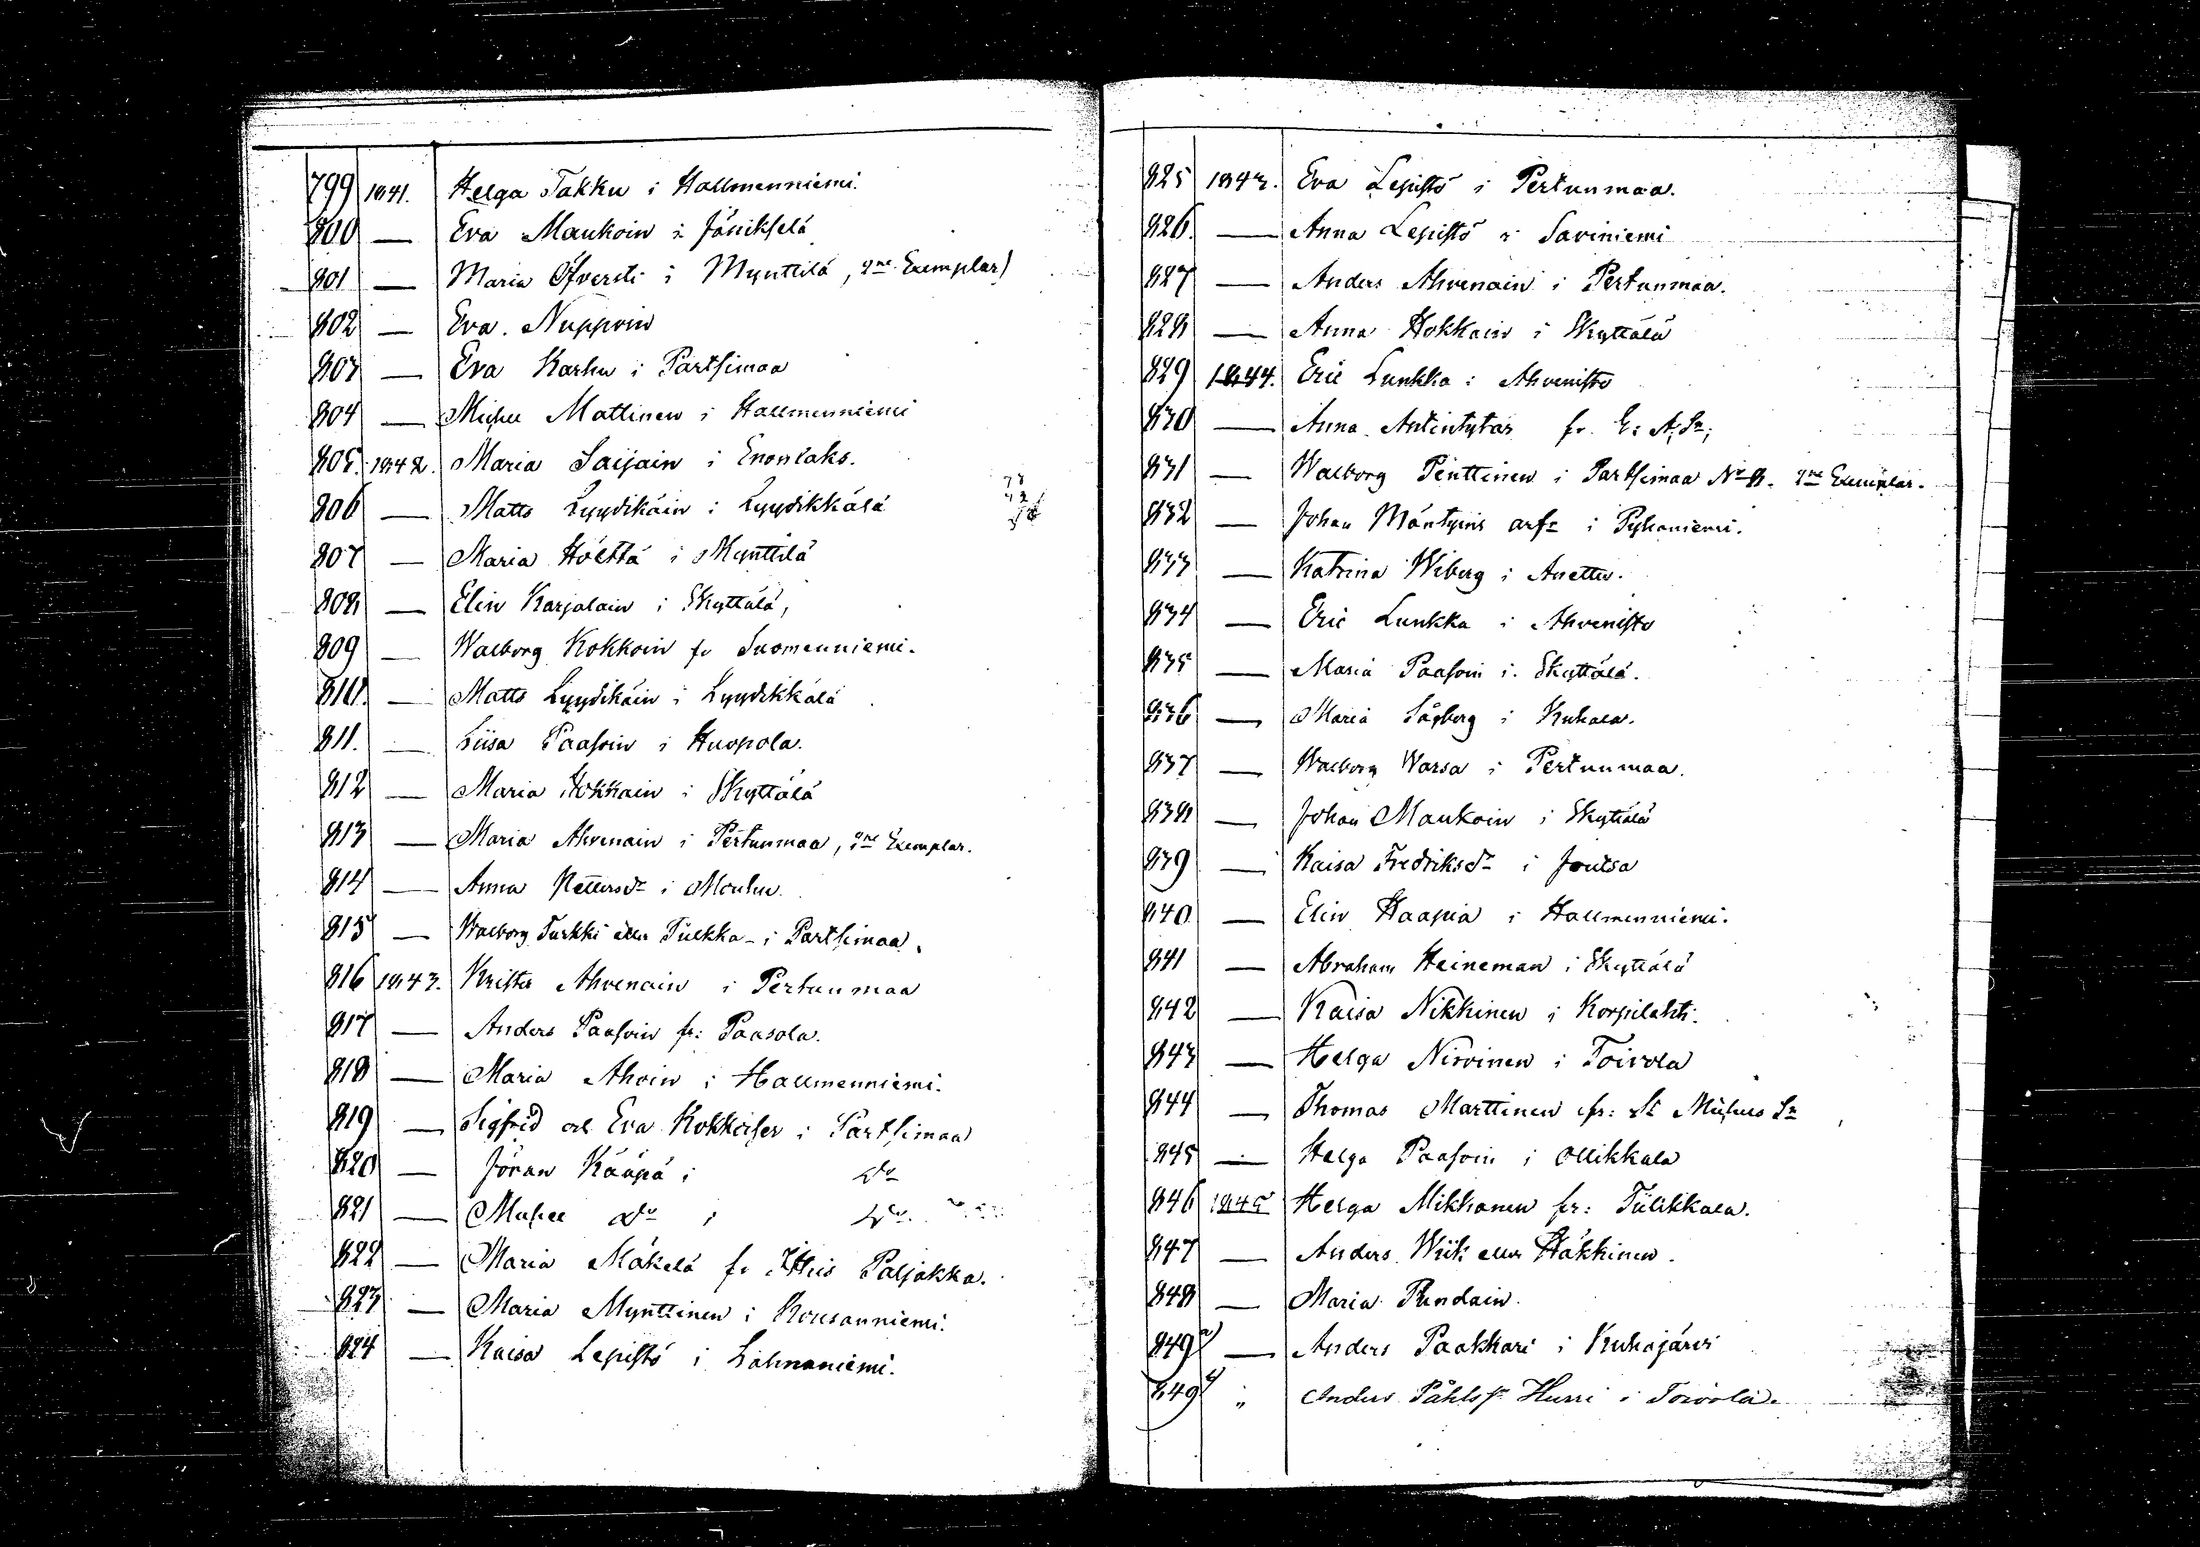 799 1841. Helga Takku i Hallmenniemi.
800 — Eva Maukoin i Jänikselä
801 — Maria Öfversti i Mynttilä, 2ne Exemplar)
802 — Eva Nuppoin
803 — Eva Karhu i Partsimaa
804 — Michel Mattinen i Hallmenniemi
805. 1842. Maria Saijain i Enonlaks.
806 — Matts Lyydikäin i Lyydikkälä
807 — Maria Hölttä i Mynttilä
808 — Elin Karjalain i Skyttälä,
809 — Walborg Kokkoin fr Suomenniemi.
810. — Matts Lyydikäin i Lyydikkälä
811. — Liisa Paasoin i Kuopola.
812 — Maria Hokkain i Skyttälä
813 — Maria Ahvenain i Pertunmaa, 2ne Exemplar.
814 — Anna Pettersdr i Mouhu.
815 — Walborg Turkki eller Tulkka i Partsimaa.
816 1843. Krister Ahvenain i Pertunmaa
817 — Anders Paasoin fr: Paasola.
818 — Maria Ahoin i Hallmenniemi.
819 — Sigfrid och Eva Kokkoiser i Partsimaa
820 — Jöran Kääpä i do
821 — Michel do i do.
822 — Maria Mäkelä fr Ittis Paljakka.
823 — Maria Mynttinen i Kousanniemi.
824 — Kaisa Lepistö i Lahnaniemi.
825 1843. Eva Lepistö i Pertunmaa.
826. — Anna Lepistö i Saviniemi
827 — Anders Ahvenain i Pertunmaa.
828 — Anna Hokkain i Skyttälä
829 1844. Eric Lunkka i Ahvenisto
830 — Anna Antintytär fr.
831 — Walborg Penttinen i Partsimaa No 8. 2ne Exemplar.
832 — Johan Mäntyins arfr i Pyhäniemi.
833 — Katrina Wiberg i Anettu.
834 — Eric Lunkka i Ahvenisto
835 — Maria Paasoin i Skyttälä.
836 — Maria Sågberg i Kuhala.
837 — Walborg Warsa i Pertunmaa.
838 — Johan Maukoin i Skyttälä
839 — Kaisa Fredriksdr i Joutsa
840 — Elin Haapia i Hallmenniemi.
841 — Abraham Heineman i Skyttälä
842 — Kaisa Nikkinen i Korpilahti.
843 — Helga Nirvinen i Toivola
844 — Thomas Marttinen fr: St Michels Sn
845 — Helga Paasoin i Ollikkala
846 1845 Helga Mikkonen fr: Tulikkala.
847 — Anders Wiik eller Häkkinen.
848 — Maria Pundain.
849 — Anders Paakkari i Kuhajärvi
849 „ Anders Påhlsson Hurri i Toivola.